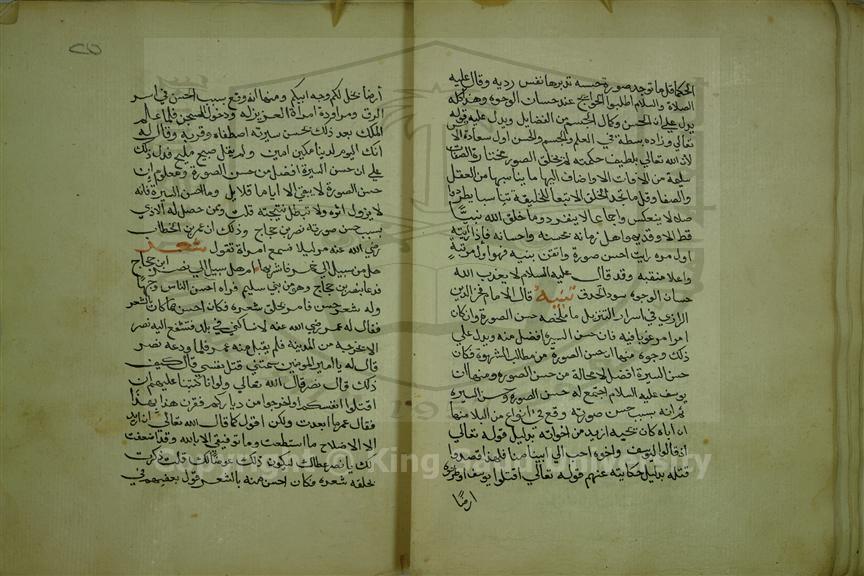 الحكما قل ما توجد صورة حسنه تدبرها نفس رديه وقال عليه
الصلاة والسلام اطلبوا الحوايج عند حسان الوجوه وهذا كله
يدل على ان الحسن وكمال الجسم من الفضايل ويدل عليه قوله
تعالى وزاده بسطة في العلم والجسم والحسن اول سعادة الانسان
لان الله تعالى بلطيف حكمته لم يخلق الصور مختارة الصفات
سليمة من الافات الا واضاف اليها ما يناسبها من العقل
والصفا وقل ما تجد الخلق الا تبعا للخليقة تناسبا يطرد
صلاه لا ينعكس واجماعا لا ينفرد وما خلق الله نبيا
قط الا وقد به اهل زمانه بحسنه واحسانه فاذا رأيته
اول مره رايت احسن صورة واتقن بنيه فهو اول مرتبة
واعلا منقبه وقد قال عليه السلام لا يعذب الله
حسان الوجوه سود الحدق تنبيه قال الامام فخر الدين
الرازي في اسرار التنزيل ما ملخصه حسن الصورة وان كان
امرا مرغوبا فيه فان حسن السيرة افضل منه ويدل على
ذلك وجوه منها ان حسن الصورة من مطالب الشهوة فكان
حسن السيرة افضل لا محالة من حسن الصوره ومنها ان
يوسف عليه السلام اجتمع له حسن الصورة وحسن السيره
ثم انه بسبب حسن صورته وقع في انواع من البلا منها
ان اباه كان يحبه ازيد من اخواته بدليل قوله تعالى
اذ قالوا ليوسف واخوه احب الى ابينا منا فلهذا قصدوا
قتله بدليل حكايته عنهم قوله تعالى اقتلوا يوسف او اطرحوه
ارضا
ارضا يخل لكم وجه ابيكم ومنها انه وقع بسبب الحسن في اسر
الرق ومراودة امراة العزيز له ودخول السجن فلما علم
الملك بعد ذلك بحسن سيرته اصطفاه وقربه وقال له
انك اليوم لدينا مكين امين ولم يقل صبيح مليح فدل ذلك
على ان حسن السيرة افضل من حسن الصورة ومعلوم ان
حسن الصورة لا يبقى الا اياما قلايل واما حسن السيرة فانه
لا يزول اثره ولا تبطل نتيجته قلت وممن حصل له الاذى
بسبب حسن صورته نصر بن حجاج وذلك ان عمر بن الخطاب
رضي الله عنه مر ليلا فسمع امراة تقول شعر
هل من سبيل الى خمر فاشربها ام هل سبيل الى نصر ابن حجاج
فدعا بنصر بن حجاج وهو من بني سليم فراه احسن الناس وجها
وله شعر حسن فامر بحلق شعره فكان احسن مما كان بالشعر
فقال له عمر رضي الله عنه لا تساكني في بلد فتشفع اليه نصر
الا يخرجه من المدينة فلم يقبل منه عمر فلما ودعه نصر
قال له يا امير المومنين سمتني قتل نفسي قال كيف
ذلك قال نصر قال الله تعالى ولو انا كتبنا عليهم ان
اقتلوا انفسكم او اخرجوا من دياركم فقرن هذا بهذا
فقال عمر ما ابعدت ولكن اقول كما قال الله تعالى ان اريد
الا الاصلاح ما استطعت وما توفيقي الا بالله وقد اضعفت
لك يا نصر عطاك ليكون ذلك عوضا لك قلت وذكرت
بحلقه شعره فكان احسن منه بالشعر قول بعضهم في